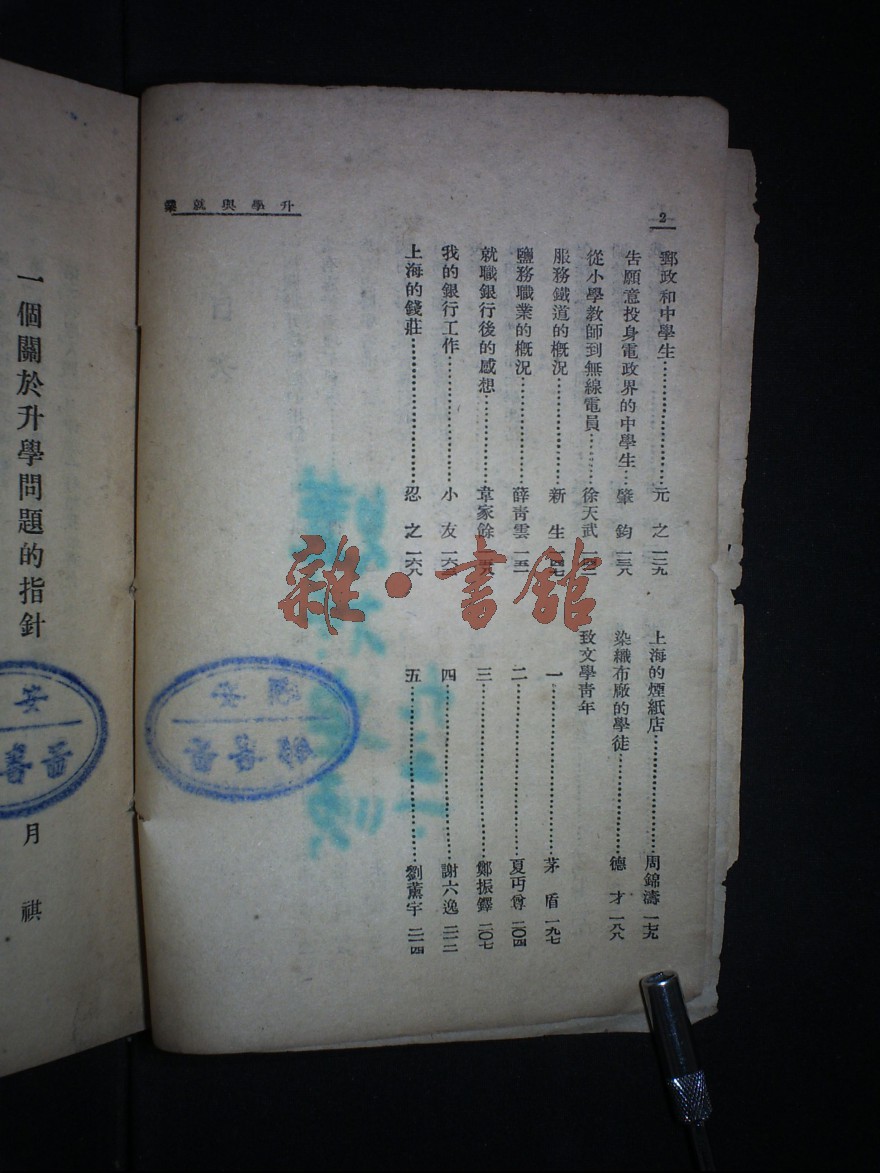 升學與就業
2
郵政和中學生……元之 一二九
告願意投身電政界的中學生…肇鈞 一三八
從小學教師到無線電員……徐天武 一四二
服務鐵道的概況……新生 一四七
鹽務職業的概況……薛青雲 一五一
就職銀行後的感想……韋家餘 一五八
我的銀行工作……小友 一六三
上海的錢莊……忍之 一六八
上海的煙紙店……周錦濤 一七九
染織布廠的學徒……德才 一八八
致文學青年
一……茅盾 一九七
二……夏丏尊 二〇四
三……鄭振鐸 二〇七
四……謝六逸 二一二
五……劉薰宇 二一四
一個關於升學問題的指針
月祺
雜·書館